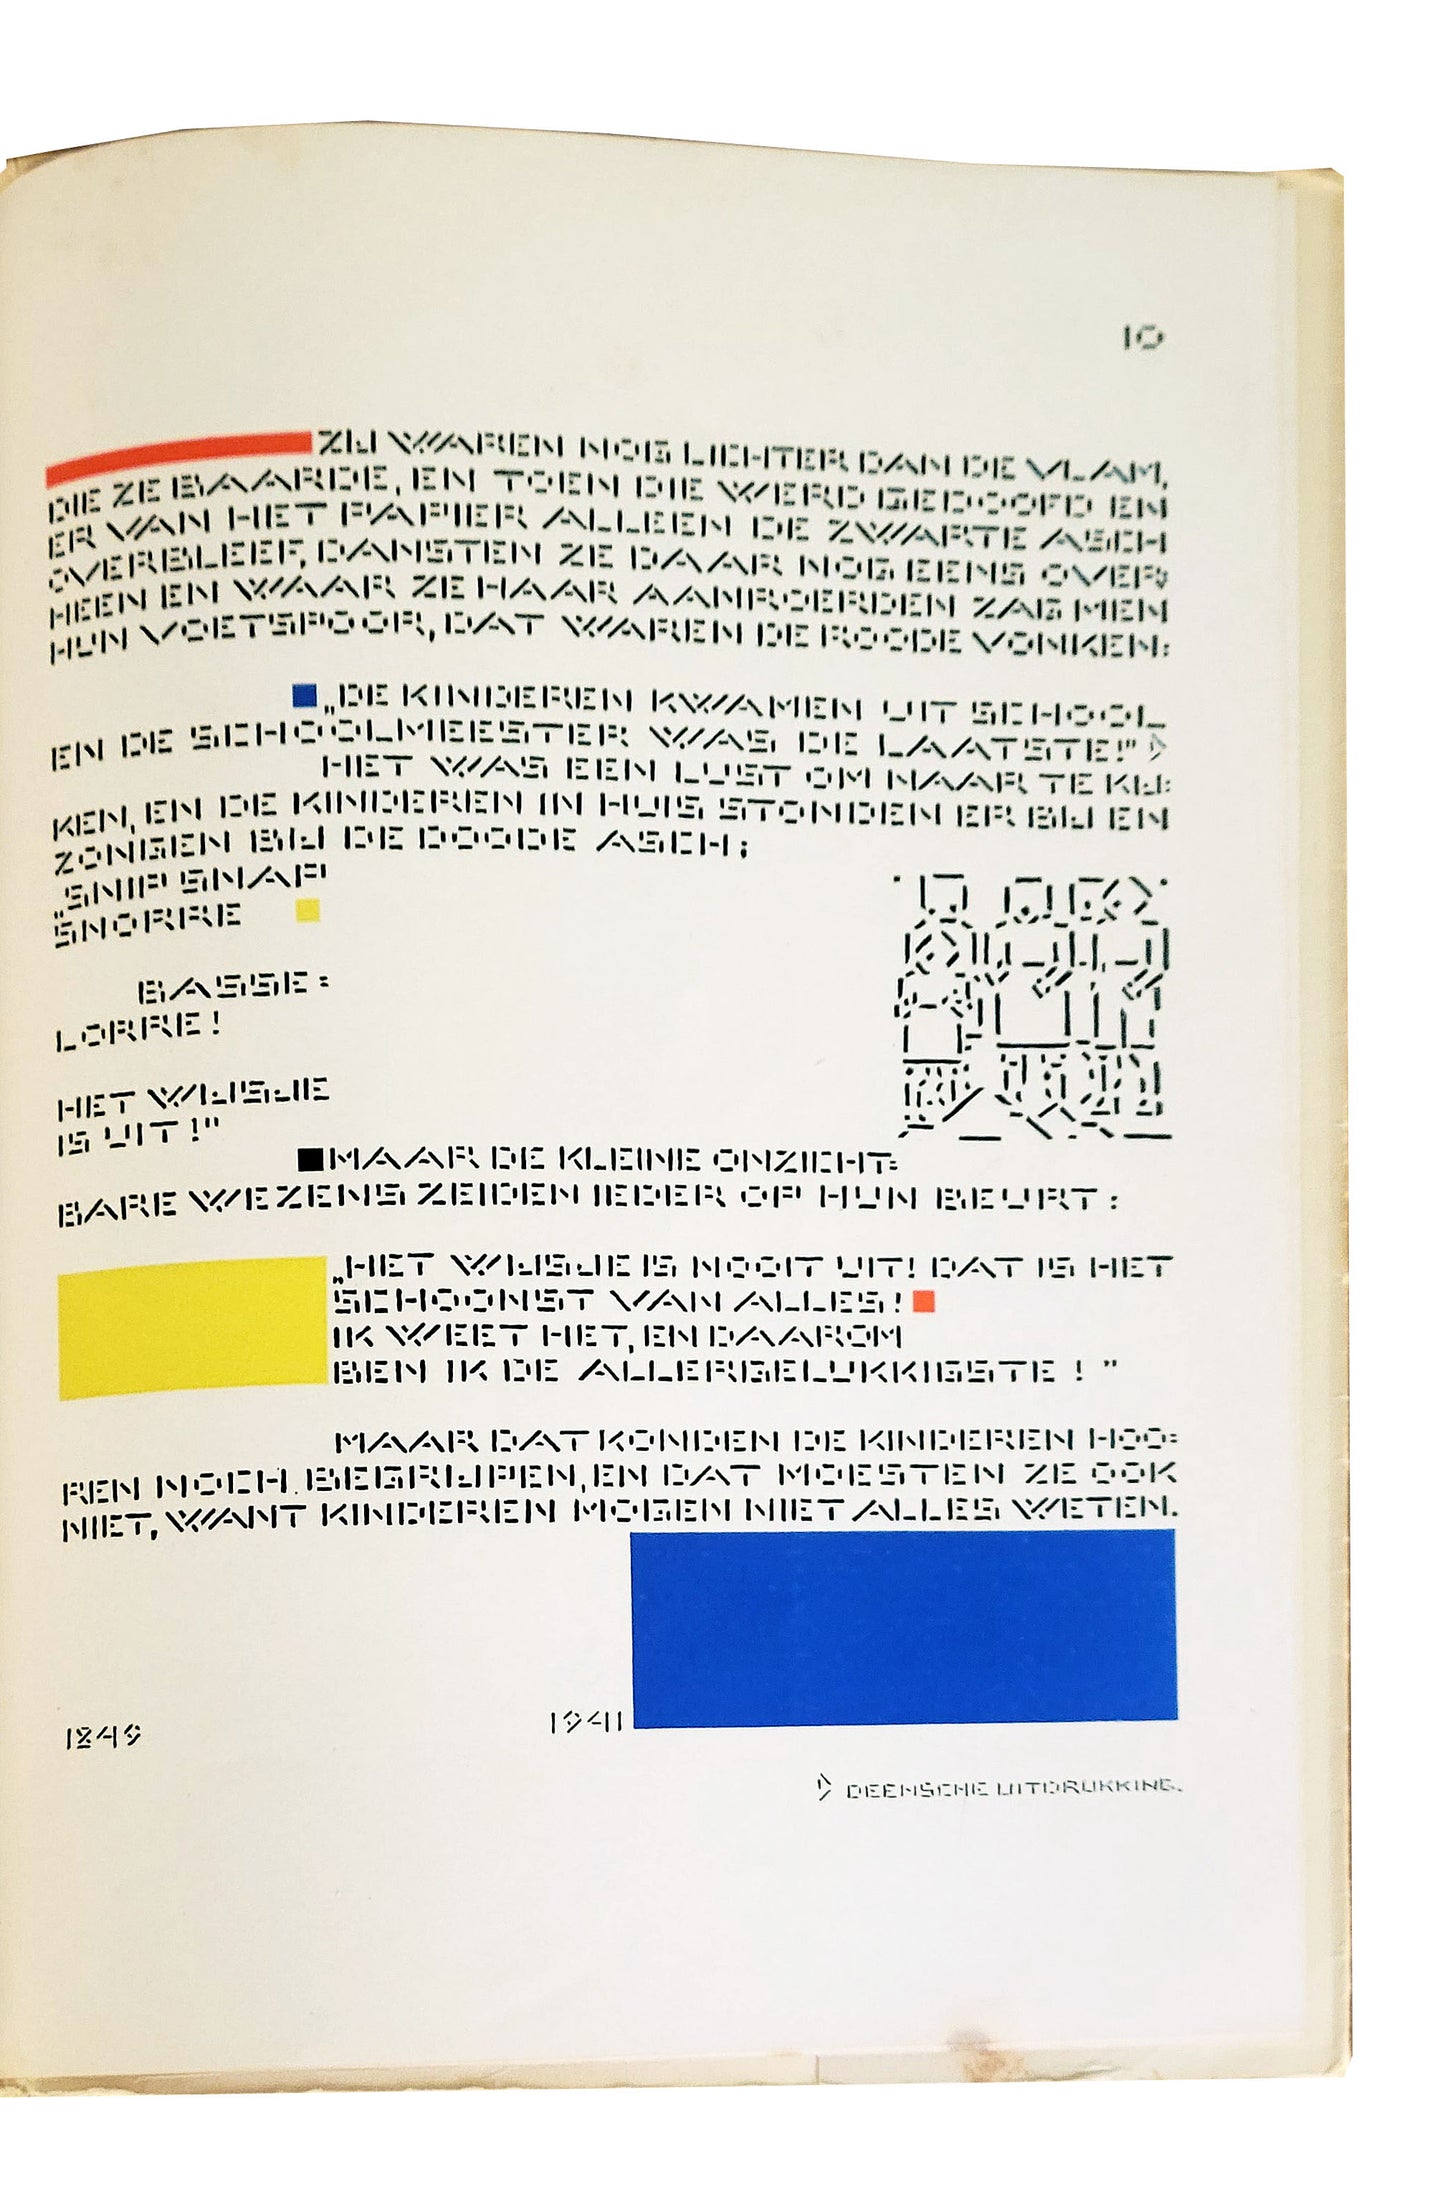 10
ZIJ WAREN NOG LICHTER DAN DE VLAM,
DIE ZE BAARDE, EN TOEN DIE WERD GEDOOFD EN
ER VAN HET PAPIER ALLEEN DE ZWARTE ASCH
OVERBLEEF, DANSTEN ZE DAAR NOG EENS OVER:
HEEN EN WAAR ZE HAAR AANROERDEN ZAG MEN
HUN VOETSPOOR, DAT WAREN DE ROODE VONKEN:
„DE KINDEREN KWAMEN UIT SCHOOL
EN DE SCHOOLMEESTER WAS DE LAATSTE!"
HET WAS EEN LUST OM NAAR TE KIJ:
KEN, EN DE KINDEREN IN HUIS STONDEN ER BIJ EN
ZONGEN BIJ DE DOODE ASCH;
„SNIP SNAP
SNORRE
BASSE:
LORRE!
HET WIJSJE
IS UIT!"
MAAR DE KLEINE ONZICHT:
BARE WEZENS ZEIDEN IEDER OP HUN BEURT:
„HET WIJSJE IS NOOIT UIT! DAT IS HET
SCHOONST VAN ALLES!
IK WEET HET, EN DAAROM
BEN IK DE ALLERGELUKKIGSTE!"
MAAR DAT KONDEN DE KINDEREN HOO:
REN NOCH BEGRIJPEN, EN DAT MOESTEN ZE OOK
NIET, WANT KINDEREN MOGEN NIET ALLES WETEN.
1849 1941
DEENSCHE UITDRUKKING.